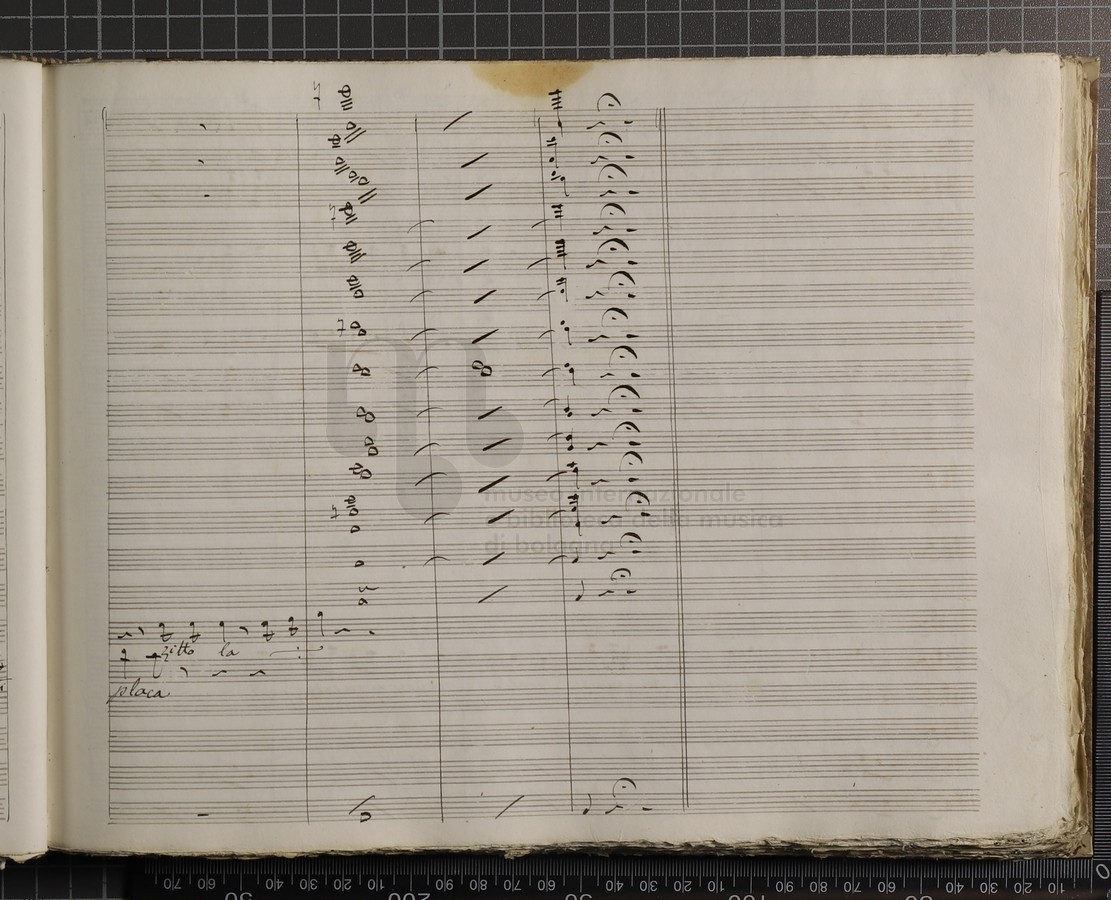 zitto la
placa
museo internazionale
e biblioteca della musica
di bologna